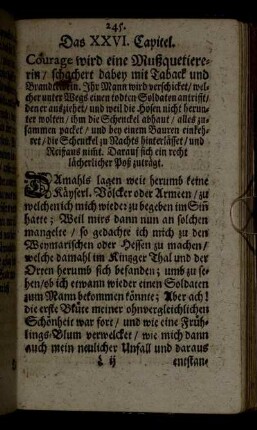 245.
Das XXVI. Capitel.
Courage wird eine Mußquetiere-
rin/ schachert dabey mit Taback und
Brandtewein. Ihr Mann wird verschicket/ wel-
cher unter Wegs einen todten Soldaten antrifft/
den er ausziehet/ und weil die Hosen nicht herun-
ter wolten/ ihm die Schenckel abhaut/ alles zu-
sammen packet/ und bey einem Bauren einkeh-
ret/ die Schenckel zu Nachts hinterlässet/ und
Reißaus nimt. Darauf sich ein recht
lächerlicher Poß zuträgt.
DAmahls lagen weit herumb keine
Käyserl. Völcker oder Armeen/ zu
welchen ich mich wieder zu begeben im Sin
hatte; Weil mirs dann nun an solchen
mangelte/ so gedachte ich mich zu den
Weymarischen oder Hessen zu machen/
welche damahl im Kintzger Thal und der
Orten herumb sich befanden; umb zu se-
hen/ ob ich etwann wieder einen Soldaten
zum Mann bekommen könnte; Aber ach!
die erste Blüte meiner ohnvergleichlichen
Schönheit war fort/ und wie eine Früh-
lings-Blum verwelcket/ wie mich dann
auch mein neulicher Unfall und daraus
L ij entstan-